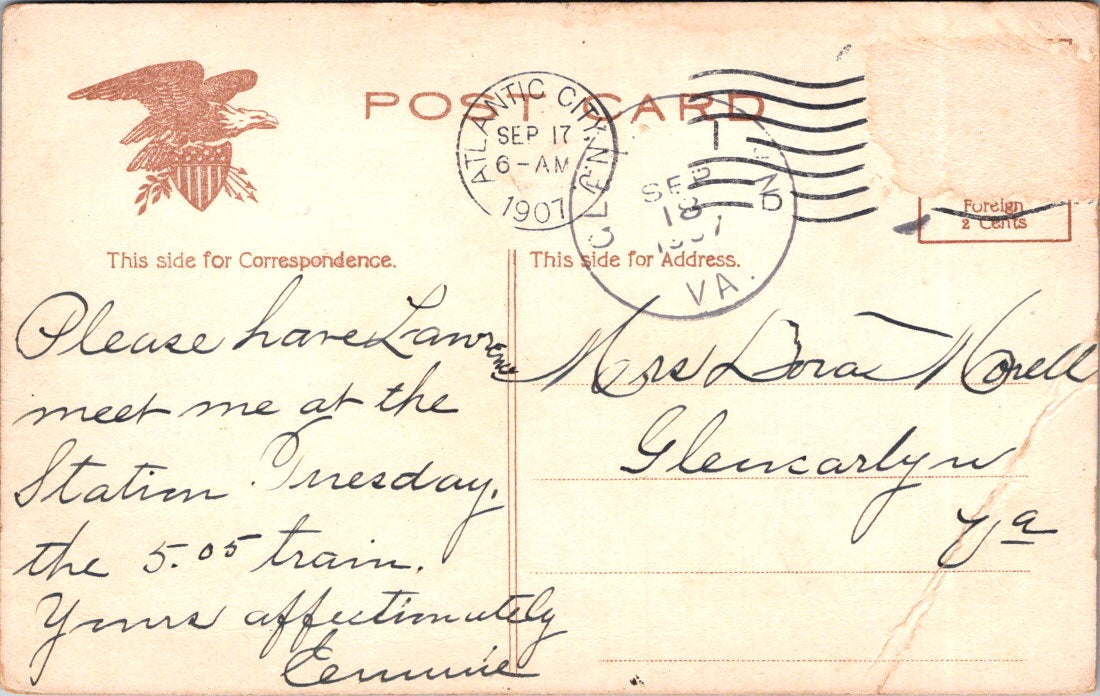 POST CARD
ATLANTIC CITY, N.J.
SEP 17
6-AM
1907
SEP
18
1907
VA.
Foreign
2 Cents
This side for Correspondence.
This side for Address.
Please have Lawrence
meet me at the
Station Tuesday.
the 5.05 train.
Yours affectionately
Mrs Dora Morell
Glencarlyn
Va